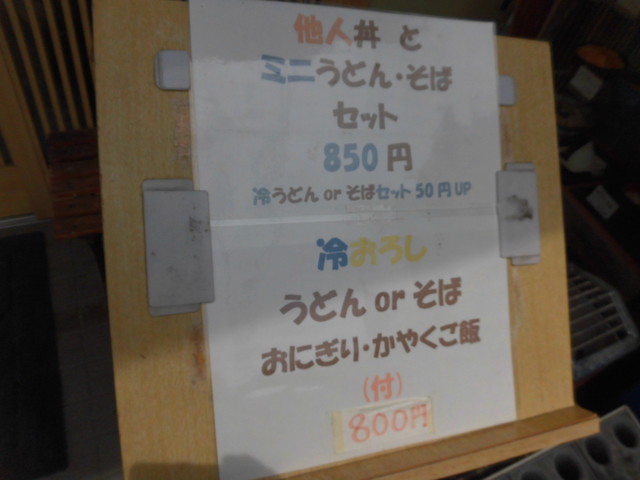 他人丼 と
ミニうどん・そば
セット
850円
冷うどん or そばセット 50円 UP
冷おろし
うどん or そば
おにぎり・かやくご飯
(付)
800円